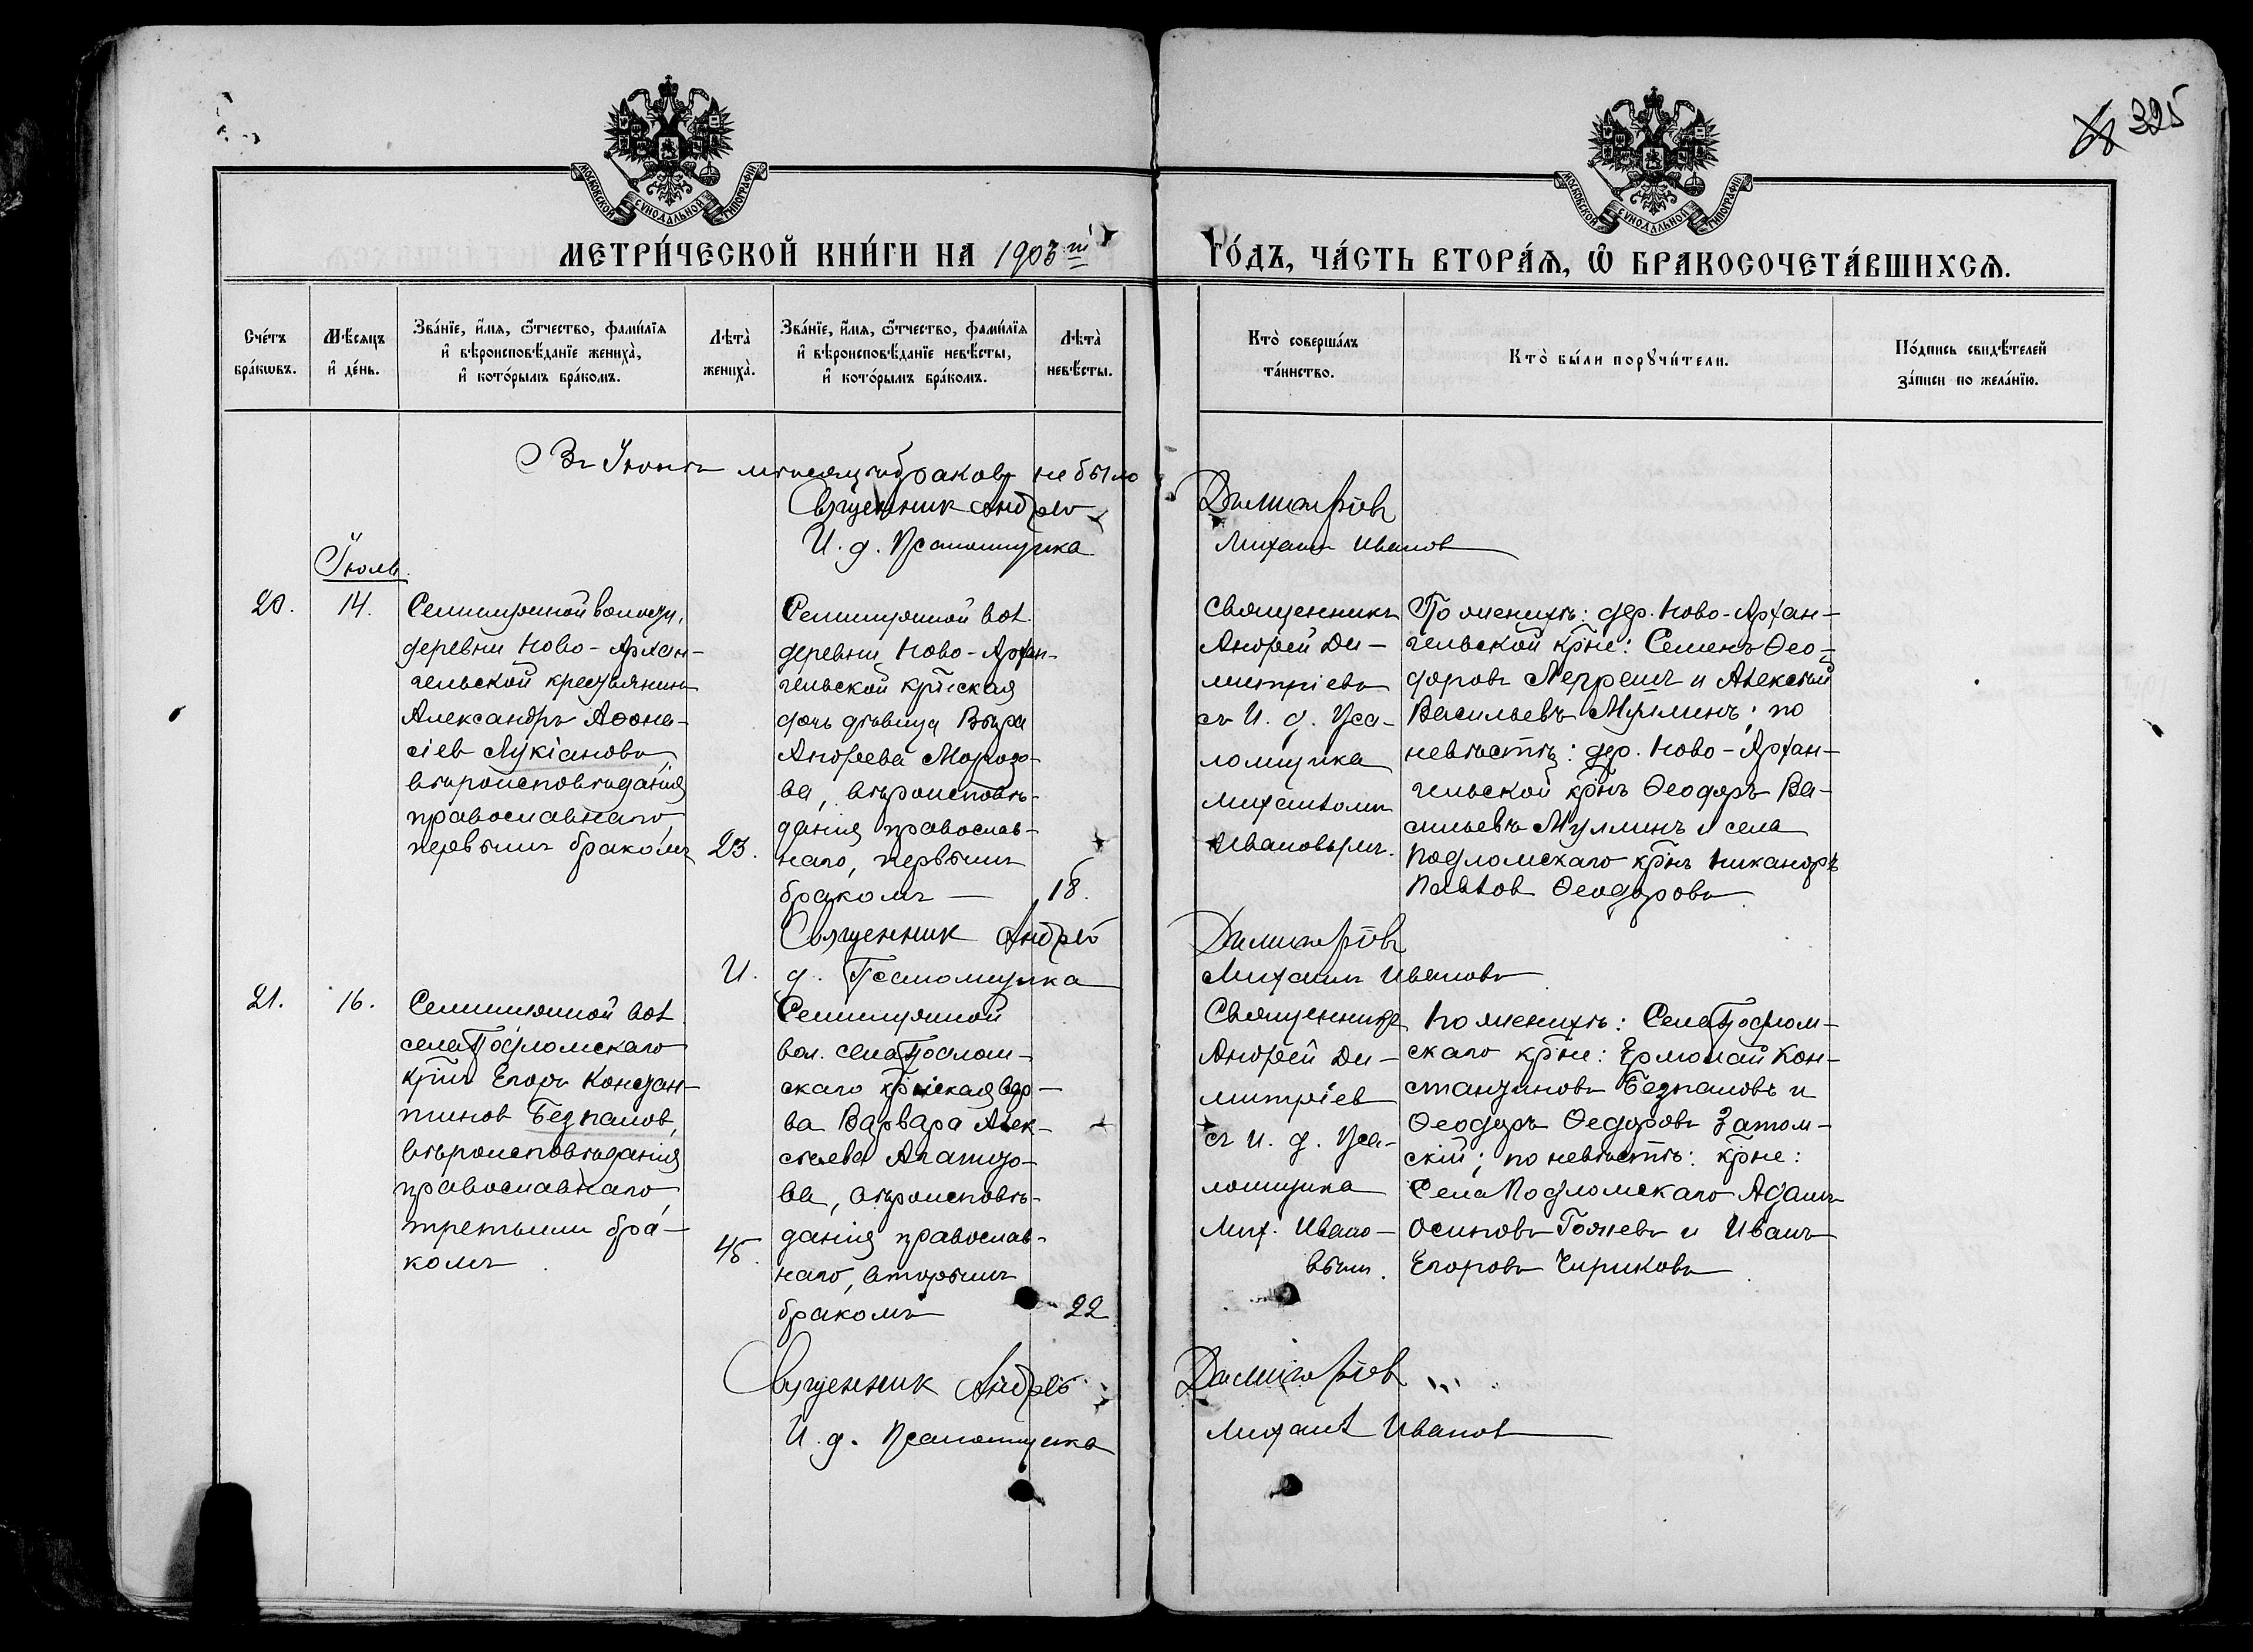 325
МОСКОВСКОЙ СУНОДАЛЬНОЙ ТИПОГРАФІИ
МОСКОВСКОЙ СУНОДАЛЬНОЙ ТИПОГРАФІИ
МЕТРИ́ЧЕСКОЙ КНИ́ГИ НА 1903 й
ГО́ДЪ, ЧА́СТЬ ВТОРА́Ѧ, Ѽ БРАКОСОЧЕТА́ВШИХСѦ.
Сче́тъ бра́кѡвъ.
Мѣ́сѧцъ и҆ де́нь.
Зва́нїе, и҆́мѧ, ѻ҆́тчество, фами́лїѧ
и҆ вѣроисповѣ́данїе жениха̀,
и҆ кото́рымъ бра́комъ.
Лѣта̀ жениха̀.
Зва́нїе, и҆́мѧ, ѻ҆́тчество, фами́лїѧ
и҆ вѣроисповѣ́данїе невѣ́сты,
и҆ кото́рымъ бра́комъ.
Лѣта̀ невѣ́сты.
Кто̀ соверша́лъ та́инство.
Кто̀ бы́ли порꙋчи́тели.
По́дпись свидѣ́телей за́писи по жела́нїю.
Въ Іюнѣ мѣсяцѣ браковъ не было
Священник Андрей Димитріев
И. д. Псаломщика Михаил Иванов
Іюль
20.
14.
Семишумной волости,
деревни Ново-Архан-
гельской крестьянинъ
Александръ Афона-
сіев Лукіановъ,
вѣроисповѣданія
православнаго,
первымъ бракомъ
23.
деревни Ново-Архан-
гельской кр҃нская
дочь дѣвица Вѣра
Андреева Морозо-
ва, вѣроисповѣ-
данія православ-
наго, первымъ
бракомъ —
18.
Священникъ
Андрей Ди-
митріевъ
съ И. д. Пса-
ломщика
Михаиломъ
Ивановымъ.
По женихѣ: дер. Ново-Архан-
гельской кр҃не: Семенъ Ѳео-
доровъ и Алексѣй
Васильевъ Муллинъ; по
невѣстѣ: дер. Ново-Архан-
гельской кр҃нъ Ѳеодоръ Ва-
сильевъ Муллинъ и села
Подломскаго кр҃нъ Никаноръ
Павлов Ѳеодоровъ
Священник Андрей Димитріев
И. д. Псаломщика Михаилъ Ивановъ
21.
16.
села Подломскаго
кр҃нъ Егоръ Констан-
тинов Безпалов,
вѣроисповѣданія
православнаго,
третьимъ бра-
комъ
45.
вол. села Подлом-
скаго кр҃нская вдо-
ва Варвара Алек-
сѣева
ва, вѣроисповѣ-
данія православ-
наго, вторымъ
бракомъ
22
Священникъ
Андрей Ди-
митріев
съ И. д. Пса-
ломщика
Мих. Ивано-
вым.
По женихѣ: Села Подлом-
скаго кр҃не: Ермолай Кон-
стантиновъ Безпаловъ и
Ѳеодоръ Ѳедоровъ Затом-
скій; по невѣстѣ: кр҃не:
Села Подломскаго Адамъ
Осиповъ и Иванъ
Егоровъ Чириковъ
Священник Андрей Димитріев
И. д. Псаломщика Михаил Иванов